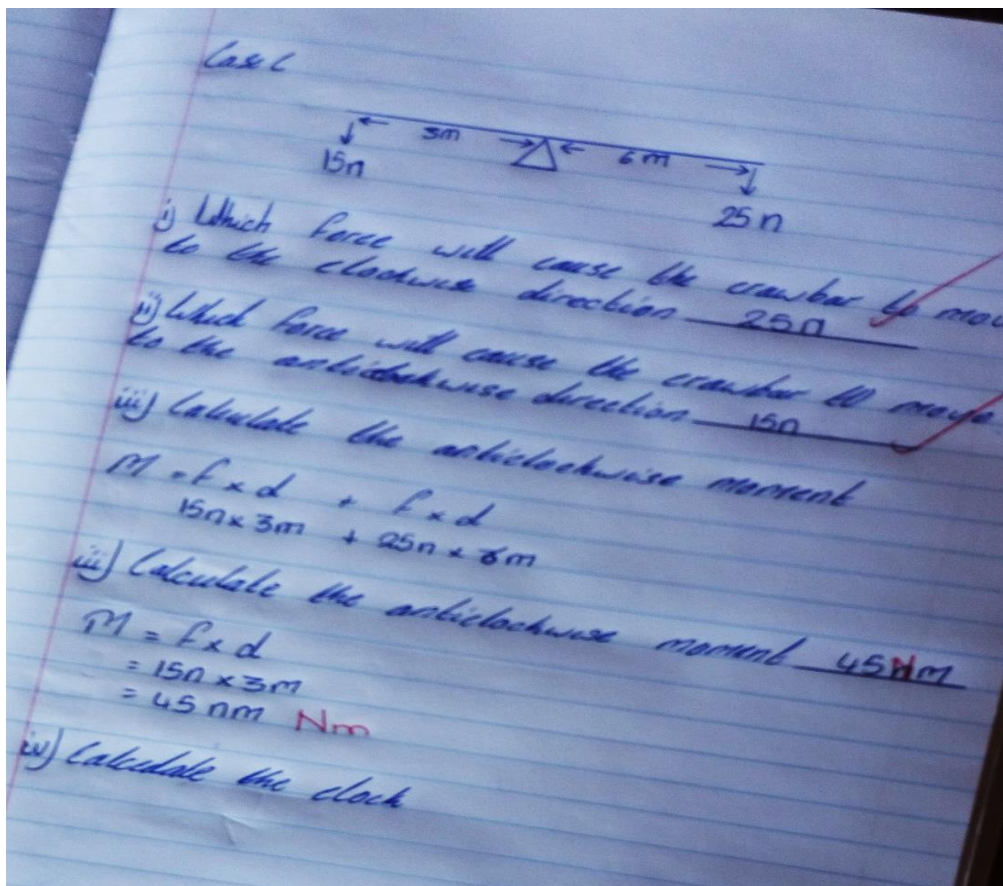 Case C
3m 6m
15n
25n
i) Which force will cause the crawbar to mov
to the clockwise direction 25n
ii) Which force will cause the crawbar to move
to the anticlockwise direction 15n
iii) Calculate the anticlockwise moment
M = f x d + f x d
15n x 3m + 25n x 6m
iii) Calculate the anticlockwise moment 45Nm
M = f x d
= 15n x 3m
= 45 nm Nm
iv) Calculate the clock